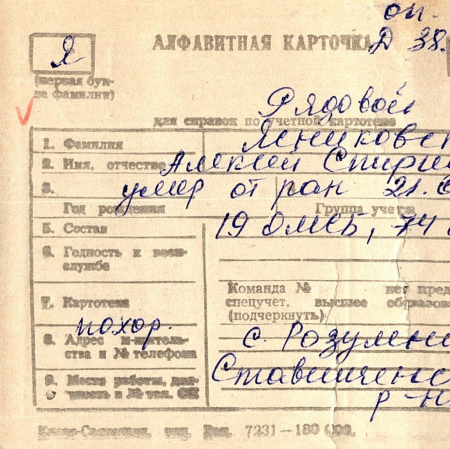 оп.
Я
АЛФАВИТНАЯ КАРТОЧКА Д 38.
(первая бук-
ва фамилии)
Рядовой
для справок по учетной картотеке
1. Фамилия Ясниковс
2. Имя, отчество Алексей Спири
3. умер от ран 21.
Год рождения Группа учета
5. Состав 19 ОМСБ, 74
6. Годность к воен-
службе
Команда № нет пред
спецучет, высшее образова
(подчеркнуть)
7. Картотека
похор. с. Розумни
8. Адрес жительс-
тва и № телефона
Ставищенс
9. Место работы, дол-
жность и № тел.
р-н
7231—180 000.